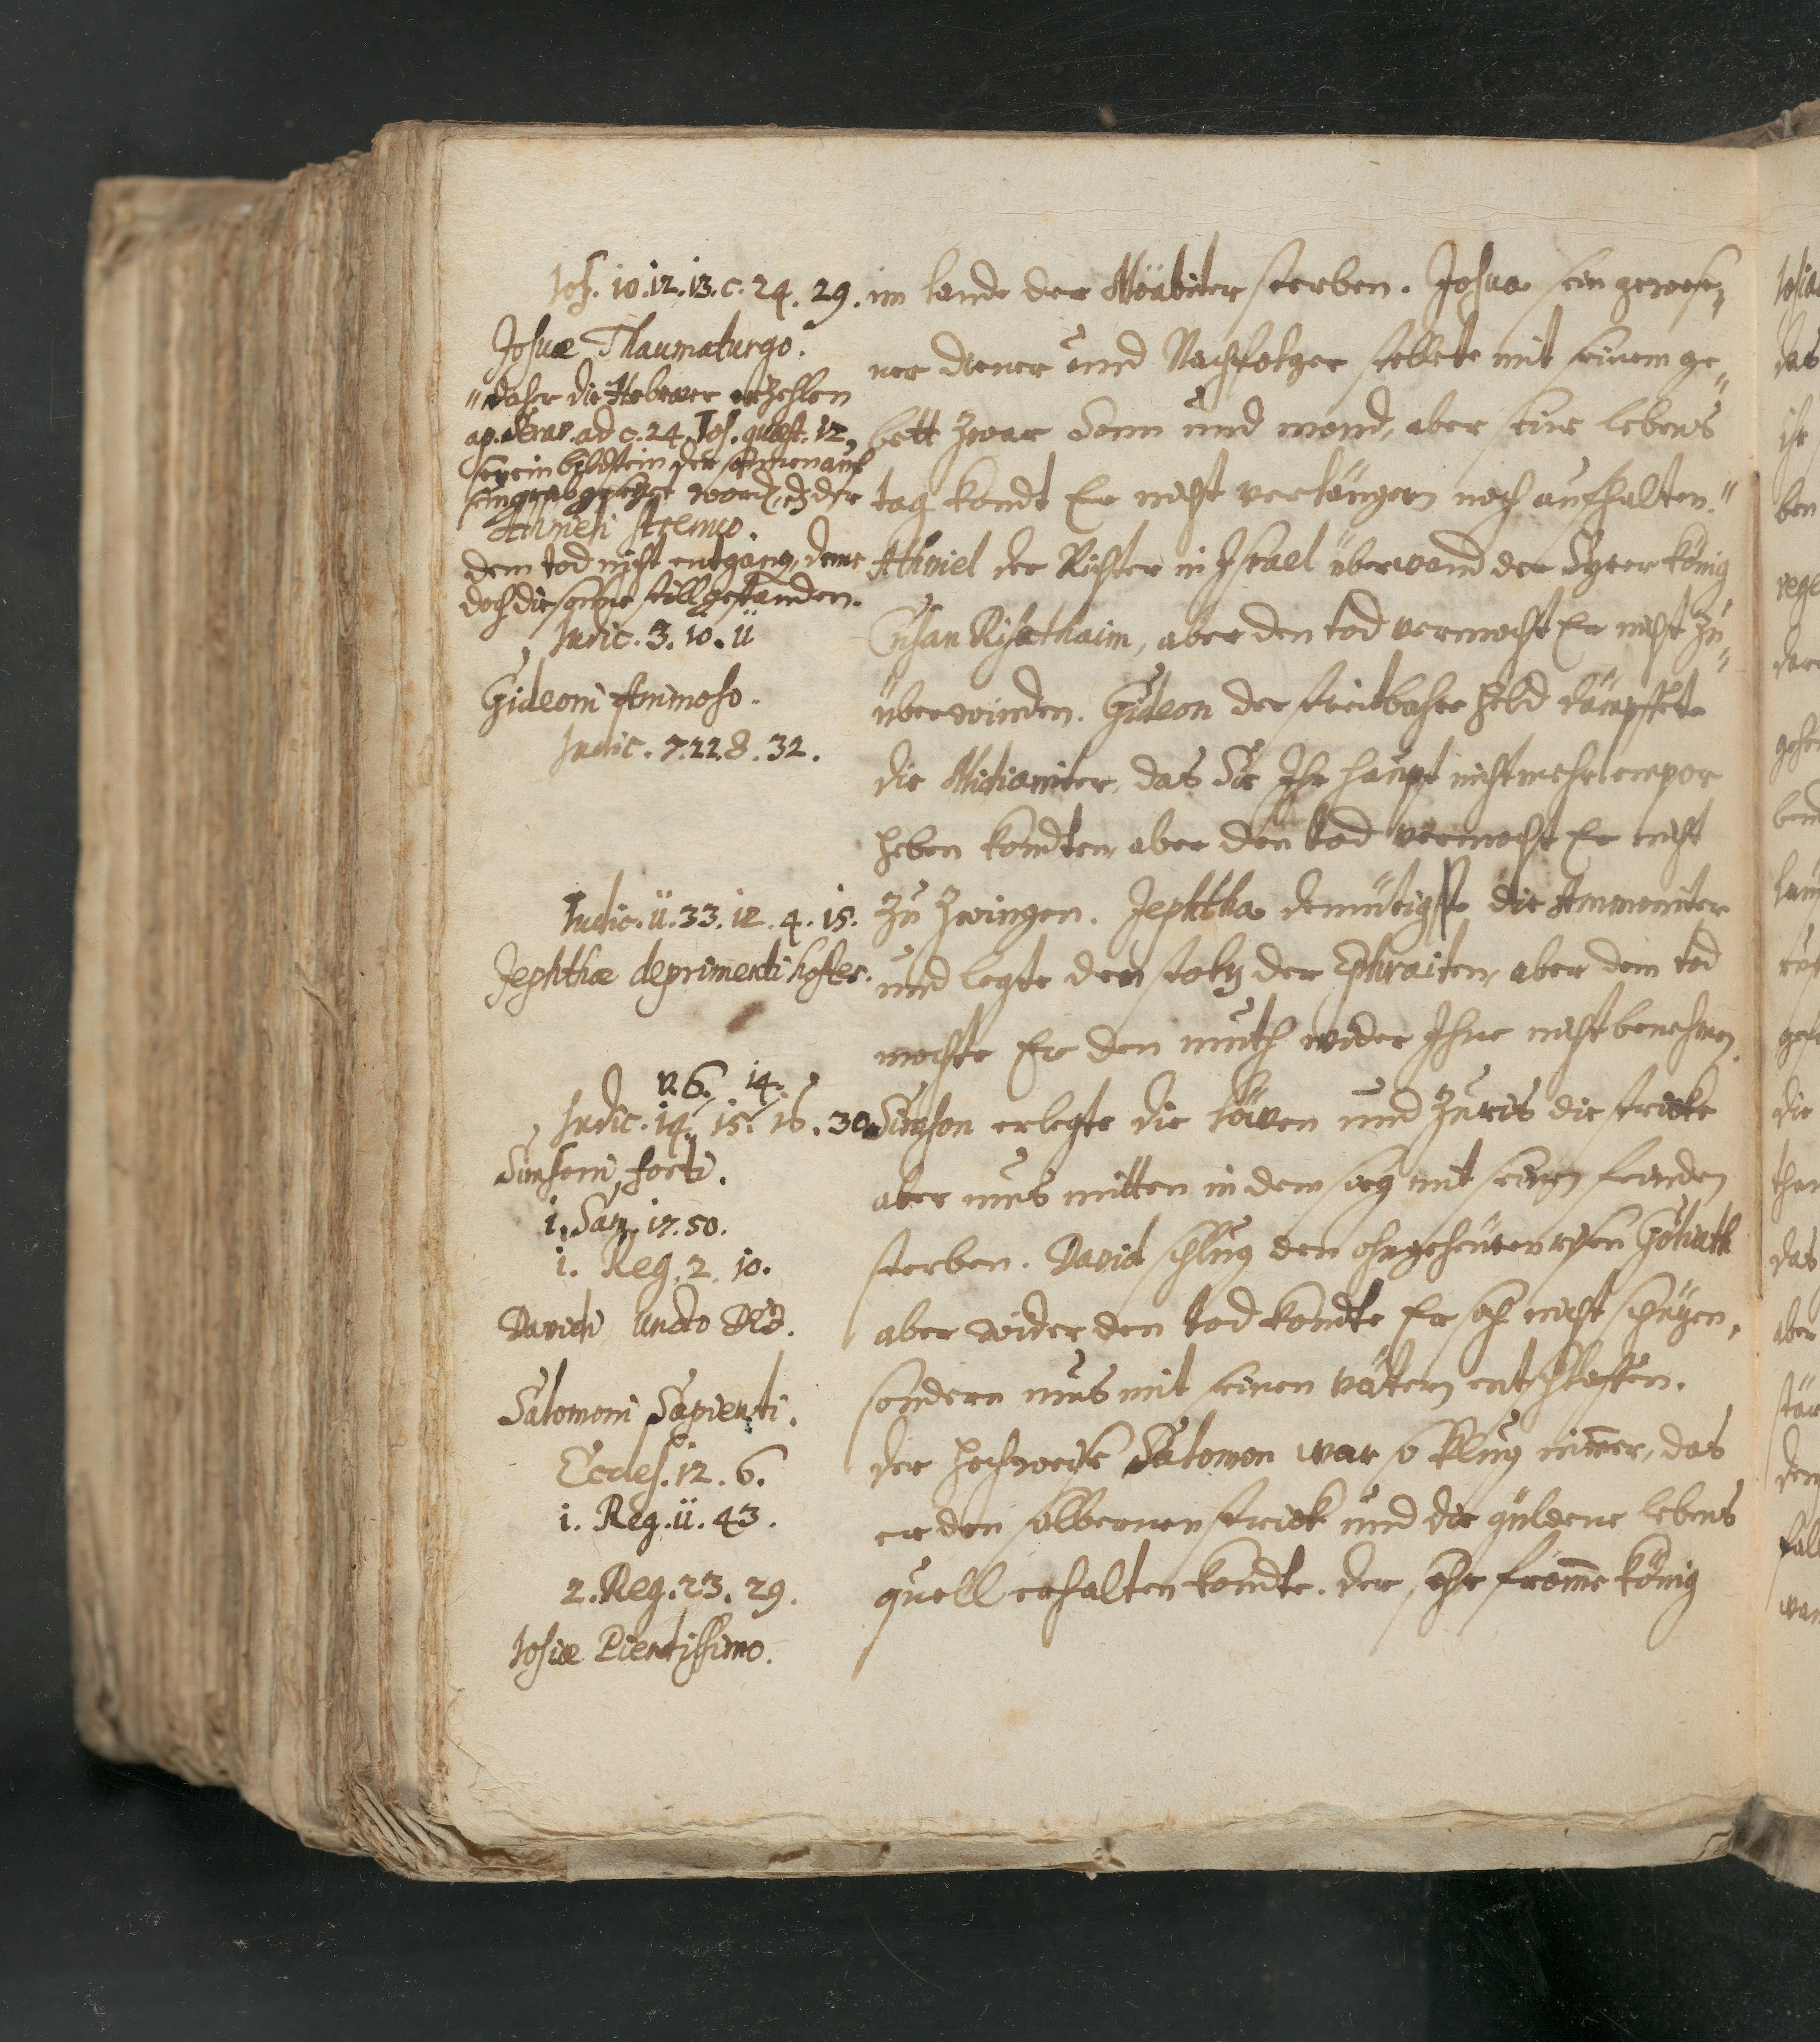 Jos. 10. 12. 13. c. 24. 29.
Josuæ Thaumaturgo.
" daher die Hebreer erzehlen
ap. Serar. ad c. 24. Jos. quæst. 12,
sey ein bildtnin der sonnen auf
sein grab gesezt word, dz der
Athnieli strenuo.
dem tod nicht entgang, deme
doch die sonne still gestanden.
Judic. 3. 10. 11
Gideoni Animoso.
Judic. 7. 22. 8. 32.
Judic. 11. 33. 12. 4. 15.
Jephthæ deprimenti hostes.
v. 6. 14.
Judic. 14. 15. 16. 30
Simsoni forti.
1. Sam. 17. 50.
1. Reg. 2. 10.
Davidi Uncto
Salomoni Sapienti.
Eccles. 12. 6.
1. Reg. 11. 43.
2. Reg. 23. 29.
Josiæ Pientissimo.
im lande der Moabiter sterben. Josua sein gewese,
ner diener und Nachfolger stellete mit seinem ge,
bett zwar Sonn und mond, aber seine lebens
tag kondt Er nicht verlängern noch aufhalten. "
Athniel der Richter in Israel überwand der Syrer König
Cusan Risathaim, aber den tod vermocht Er nicht zu
überwinden. Gideon der streitbahre held dämpffete
die Midianiter, das Sie Ihr haupt nicht mehr empor
heben kondten, aber den tod vermocht Er nicht
zu zwingen. Jephtha demütigte die Ammoniter
und legte den stoltz der Ephraiten, aber dem tod
mochte Er den muth wider Ihne nicht benehmen.
Simson erlegte die löwen und zuris die stricke
aber mus mitten in dem sieg mit seinen feinden
sterben. David schlug den ohngeheuren risen Goliath
aber wider den tod kondte Er sich nicht schüzen,
sondern mus mit seinen vätern entschlaffen.
der hochweise Salomon war so klug nimmer, das
er den silbernen strick und die güldene lebens
quell erhalten kondte. der sehr fromme König